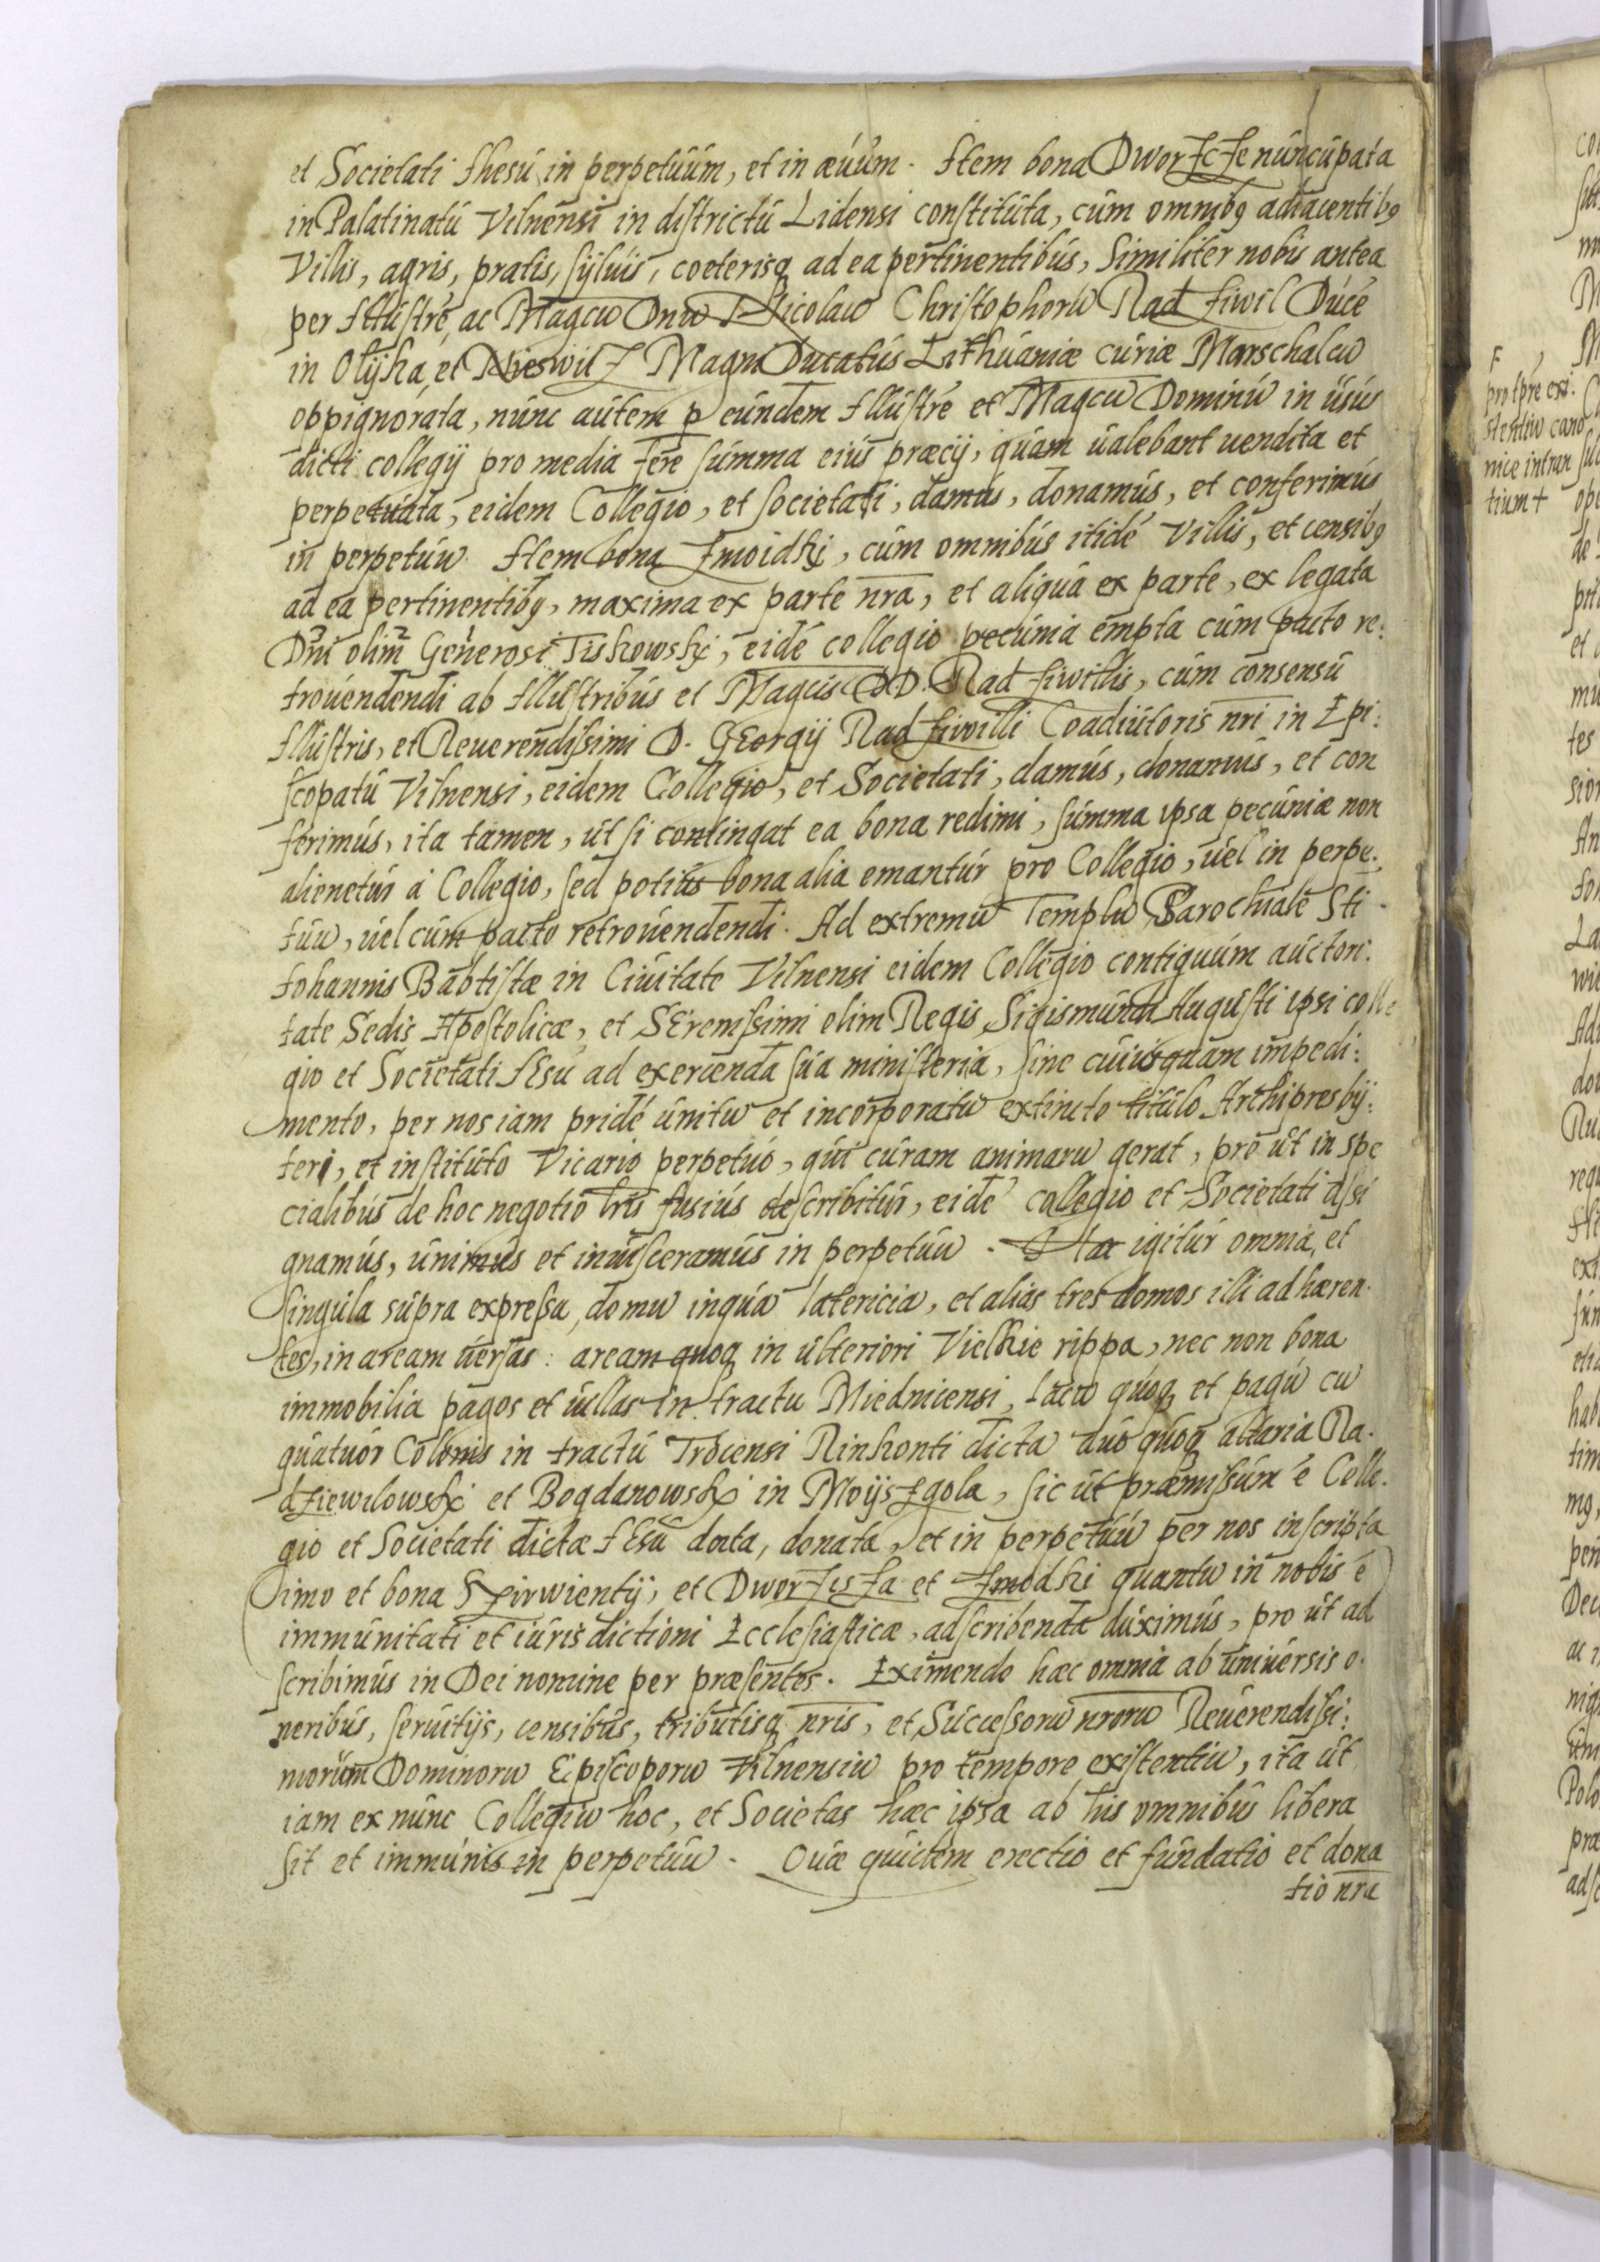 et Societati Ihesu in perpetuum, et in æuum. Item bona Dworzcze nuncupata
in Palatinatu Vilnensi in districtu Lidensi constituta, cum omnibꝫ adiacentibꝫ
Villis, agris, pratis, syluis, coeterisq ad ea pertinentibus, similiter nobis antea
per Illustrē, ac Magcū Dnū Nicolaū Christophorū Radziwil Ducē
in Olijka, et Nieswiz Magni Ducatus Lithuaniæ curiæ Marschalcū
oppignorata, nunc autem p eundem Illustrē et Magcū Dominū in usus
dicti collegij pro media fere summa eius præcij, quam ualebant uendita et
perpetuata, eidem Collegio, et societati, damus, donamus, et conferimus
in perpetuū. Item bona Zmoidzki, cum omnibus itidē Villis, et censibꝫ
ad ea pertinentibꝫ, maxima ex parte nra, et aliqua ex parte, ex legata
Dni olim Generosi Tiskowski, eidē collegio pecunia empta cum pacto re:
trouendendi ab Illustribus et Magcis DD. Radziwillis, cum consensu
Illustris, et Reuerendissimi D. Georgij Radziwilli Coadiutoris nri in Epi:
scopatu Vilnensi, eidem Collegio, et Societati, damus, donamus, et con
ferimus, ita tamen, ut si contingat ea bona redimi, summa ipsa pecuniæ non
alienetur a Collegio, sed potius bona alia emantur pro Collegio, uel in perpe:
tuū, uel cum pacto retrouendendi. Ad extremū Templū Parochiale Sti
Iohannis Baptistæ in Ciuitate Vilnensi eidem Collegio contiguum auctori:
tate Sedis Apostolicæ, et Serenissimi olim Regis Sigismundi Augusti ipsi colle
gio et Societati Iesu ad exercenda sua ministeria, sine cuiusquam impedi:
mento, per nos iam pridē unitū et incorporatū extincto titulo Archipresbij:
teri, et instituto Vicario perpetuo, qui curam animarū gerat, pro ut in spe
cialibus de hoc negotio lris fusius describitur, eidē collegio et Societati assi
gnamus, unimus et inuisceramus in perpetuū. Hæc igitur omnia, et
singula supra expressa, domū inquā latericia, et alias tres domos illi adhæren.
tes, in aream uersas: aream quoq in ulteriori Vielkie rippa, nec non bona
immobilia pagos et uillas in tractu Miedniciensi, lacū quoq et pagū cū
quatuor Colonis in tractu Trocensi Rinkonti dicta duo quoq altaria Ra.
dziewilowski et Bogdanowski in Moijszgola, sic ut præmissum ē Colle.
gio et Societati dictæ Iesu data, donata, et in perpetuū per nos inscripta
imo et bona Szirwientij, et Dworzisza et Zmodzki quantū in nobis ē
immunitati et iurisdictioni Ecclesiasticæ, adscribenda duximus, pro ut ad
scribimus in Dei nomine per præsentes. Eximendo hæc omnia ab uniuersis o.
neribus, seruitijs, censibus, tributisq nris, et Successorū nrorū Reuerendissi:
morum Dominorū Episcoporū Vilnensiū pro tempore existentiū, ita ut
iam ex nunc Collegiū hoc, et Societas hæc ipsa ab his omnibus libera
sit et immunis in perpetuū. Quæ quidem erectio et fundatio et dona
tio nra
F
pro tpre exi:
stentiū cano
nice intran
tium +